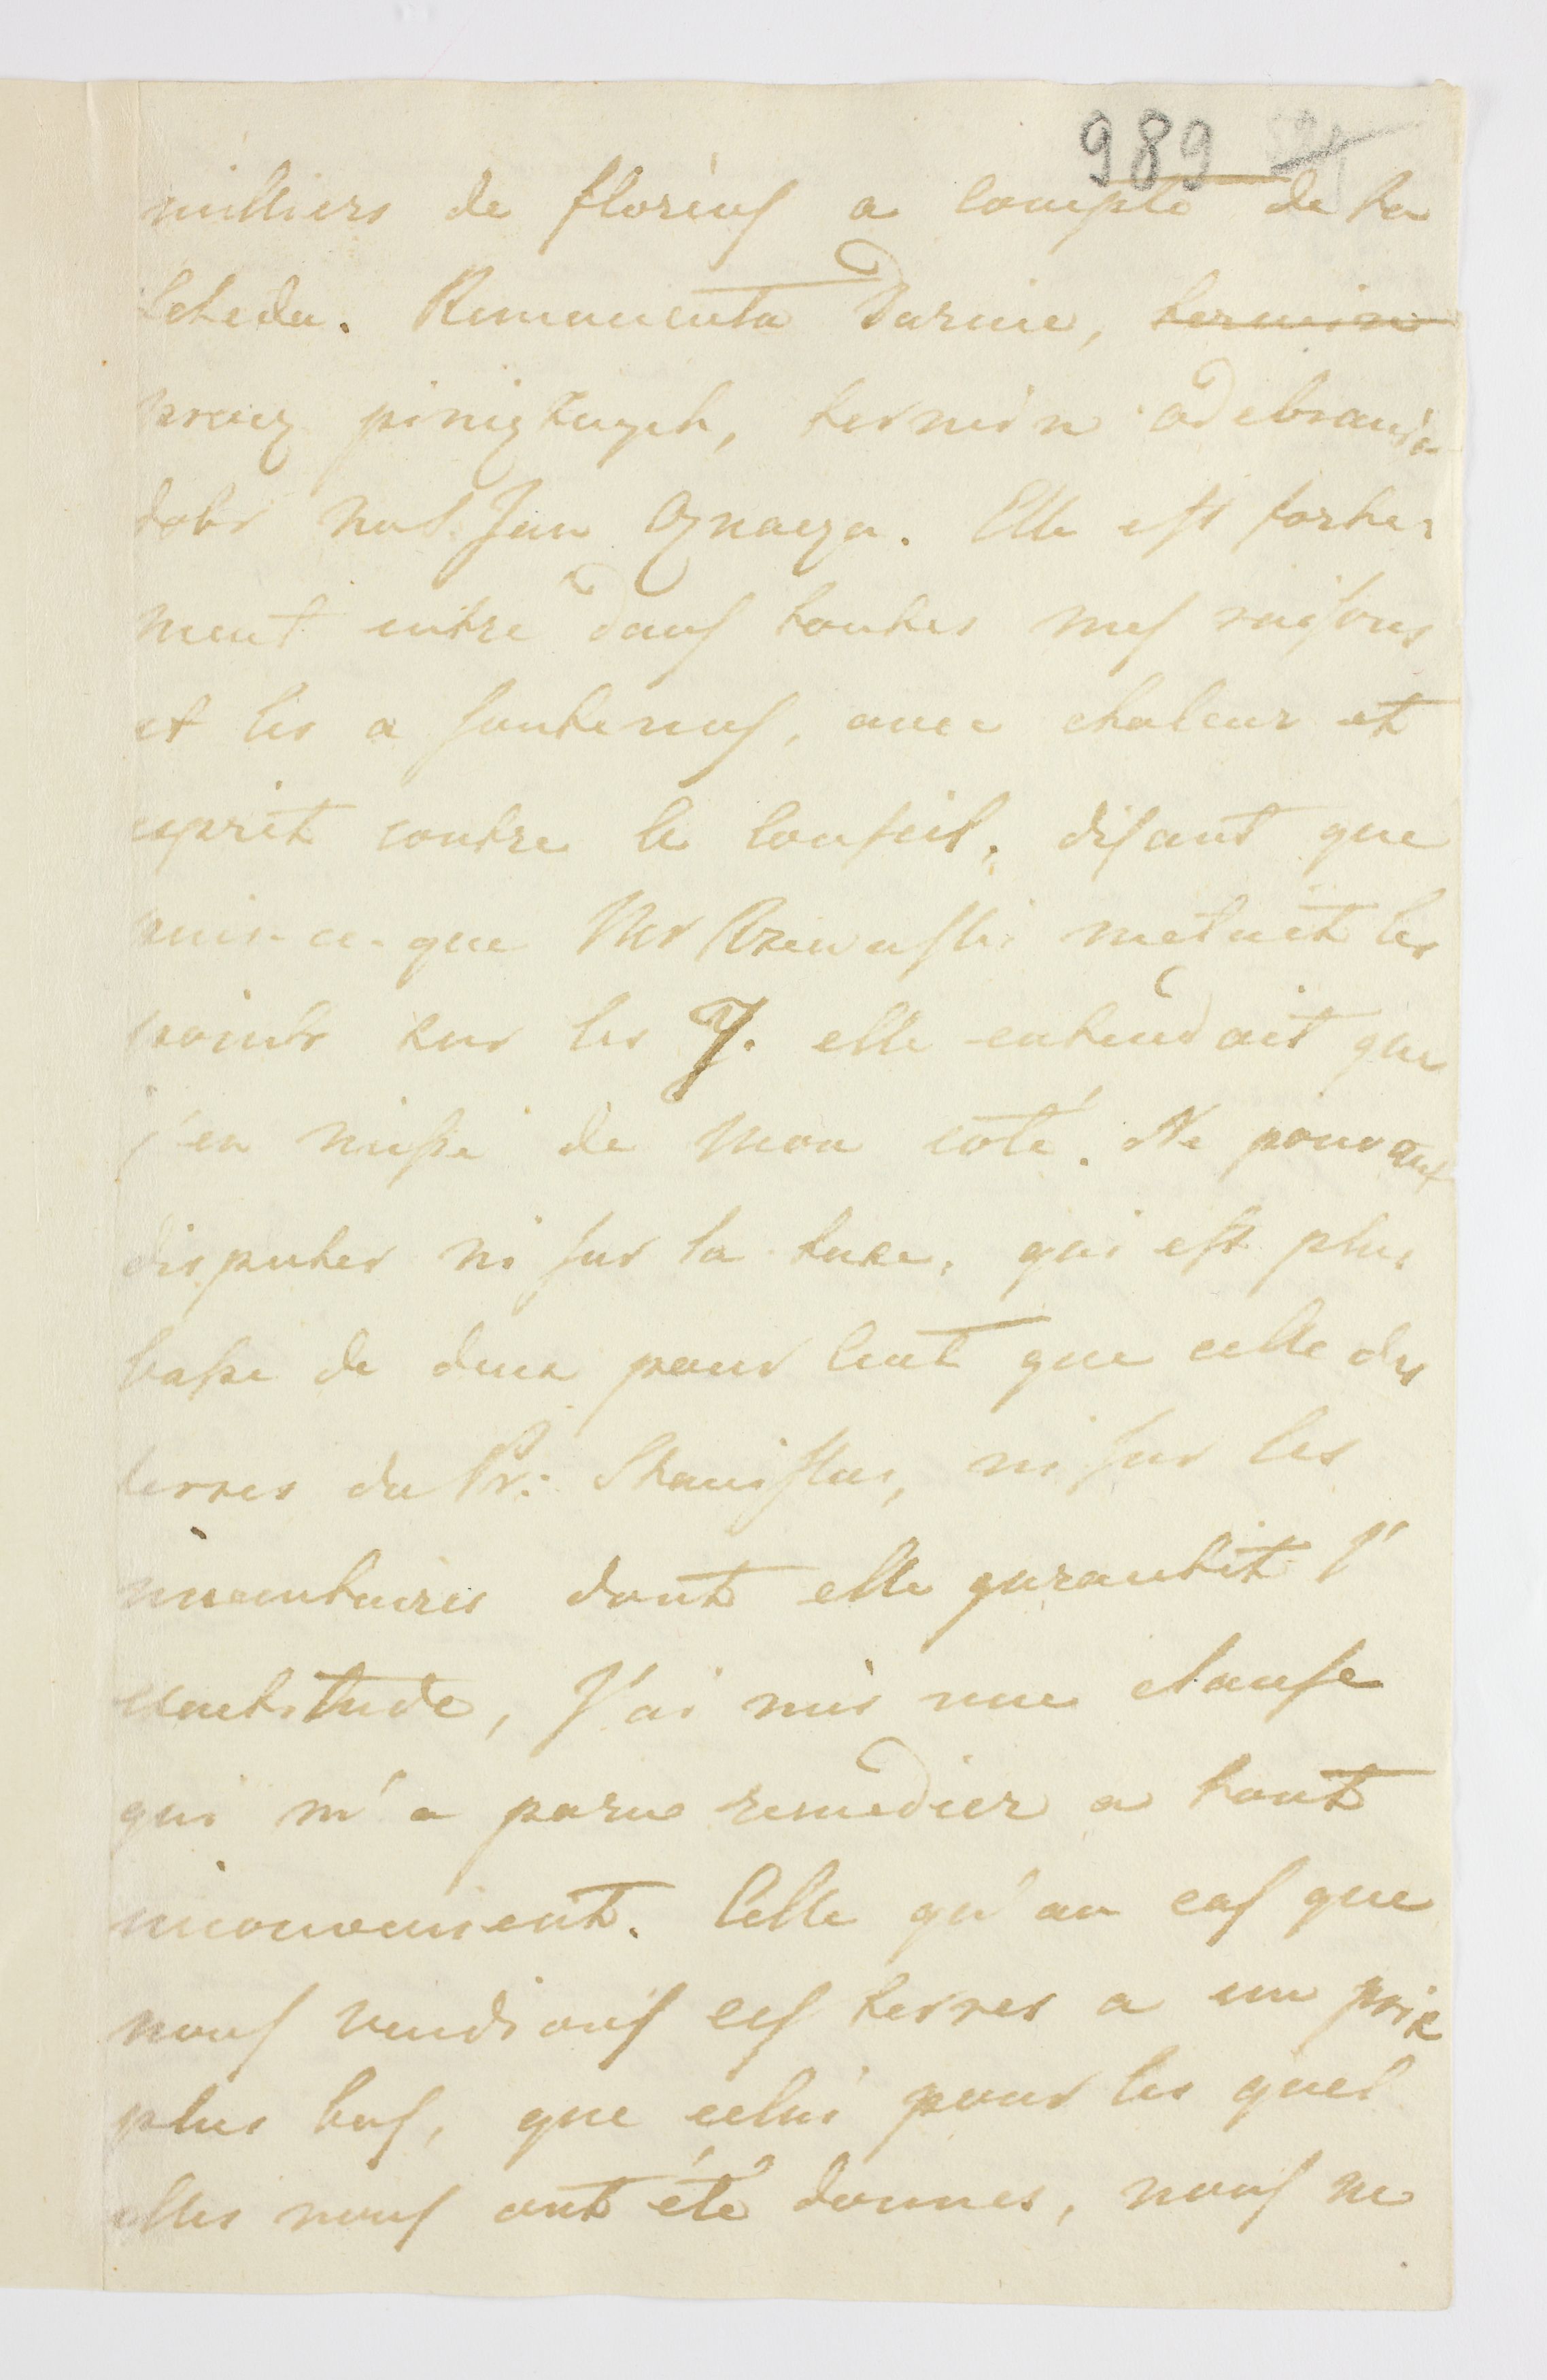 989
milliers de florins a compte de la
Scheda. Remanenta Darnie, termin
procz pinigznych, termin odebrania
dobr na S. Jan Oznacza. Elle est forte-
ment entre dans toutes mes raisons
et les a soutenus, avec chaleur et
esprit contre le Conseil, disant que
puis-ce-que Mr Rzewuski metait les
points sur les Y. elle entendait que
j'en misse de mon coté. Ne pouvant
disputer ni sur la taxe, qui est plus
basse de deux pour Cent que celle des
terres du Pr: Stanislas, ni sur les
inventaires dont elle garantit l'
exactitude, J'ai mis une clause
qui m'a paru remedier a tout
inconvenient. Celle qu'au cas que
nous vendions ces terres a un prix
plus bas, que celui pour les quel
elles nous ont été données, nous ne